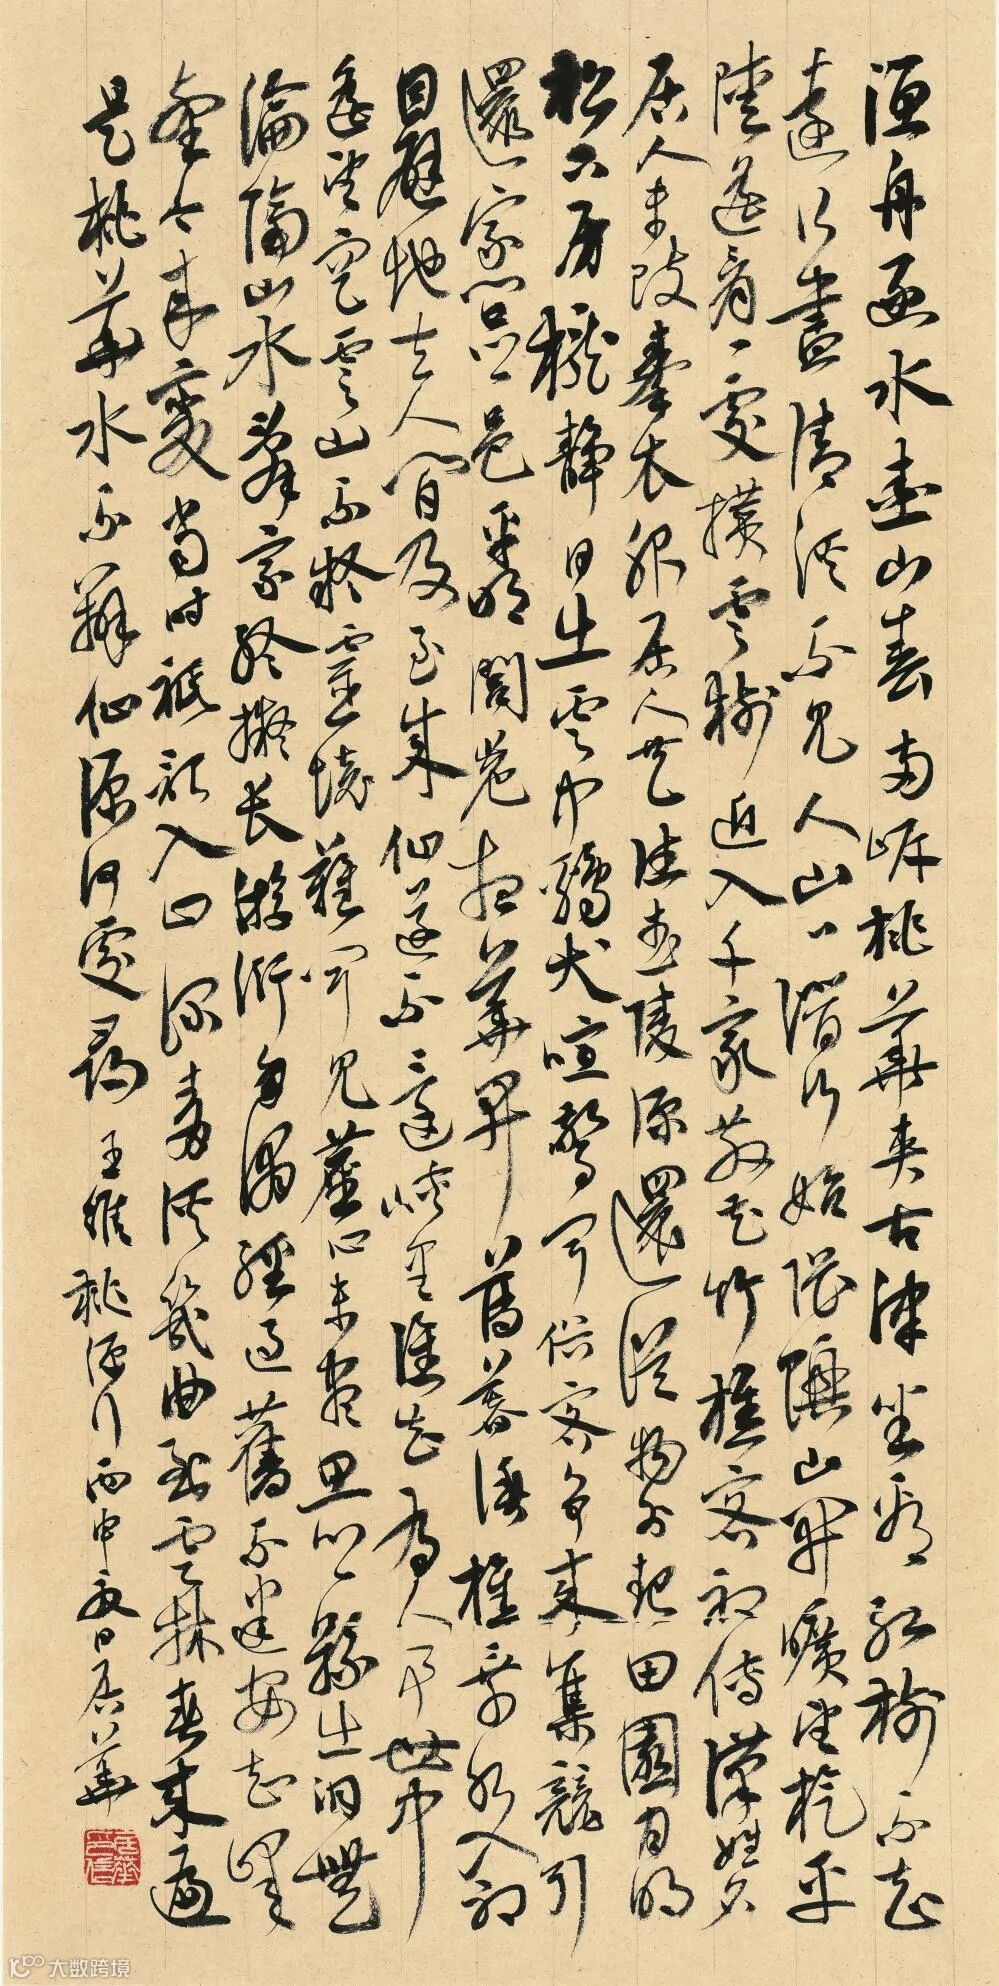 漁舟逐水愛山春兩岸桃華夾古津坐看紅樹不知
遠行盡清溪不見人山口潛行始隈隩山開曠望旋平
陸遙看一處攢雲樹近入千家散花竹樵客初傳漢姓名
居人未改秦衣服居人共住武陵源還從物外起田園月明
松下房櫳靜日出雲中鷄犬喧驚聞俗客爭來集競引
還家問都邑平明閭巷掃華開薄暮漁樵乘水入初
因避地去人間及至成仙遂不還峽里誰知有人事世中
遙望空雲山不疑靈境難聞見塵心未盡思鄉縣出洞無
論隔山水辭家終擬長游衍自謂經過舊不迷安知峰
壑今來變當時祗記入山深青溪幾曲到雲林春來遍
是桃華水不辨仙源何處尋 王維桃源行 丙申夏日居華
大数跨境